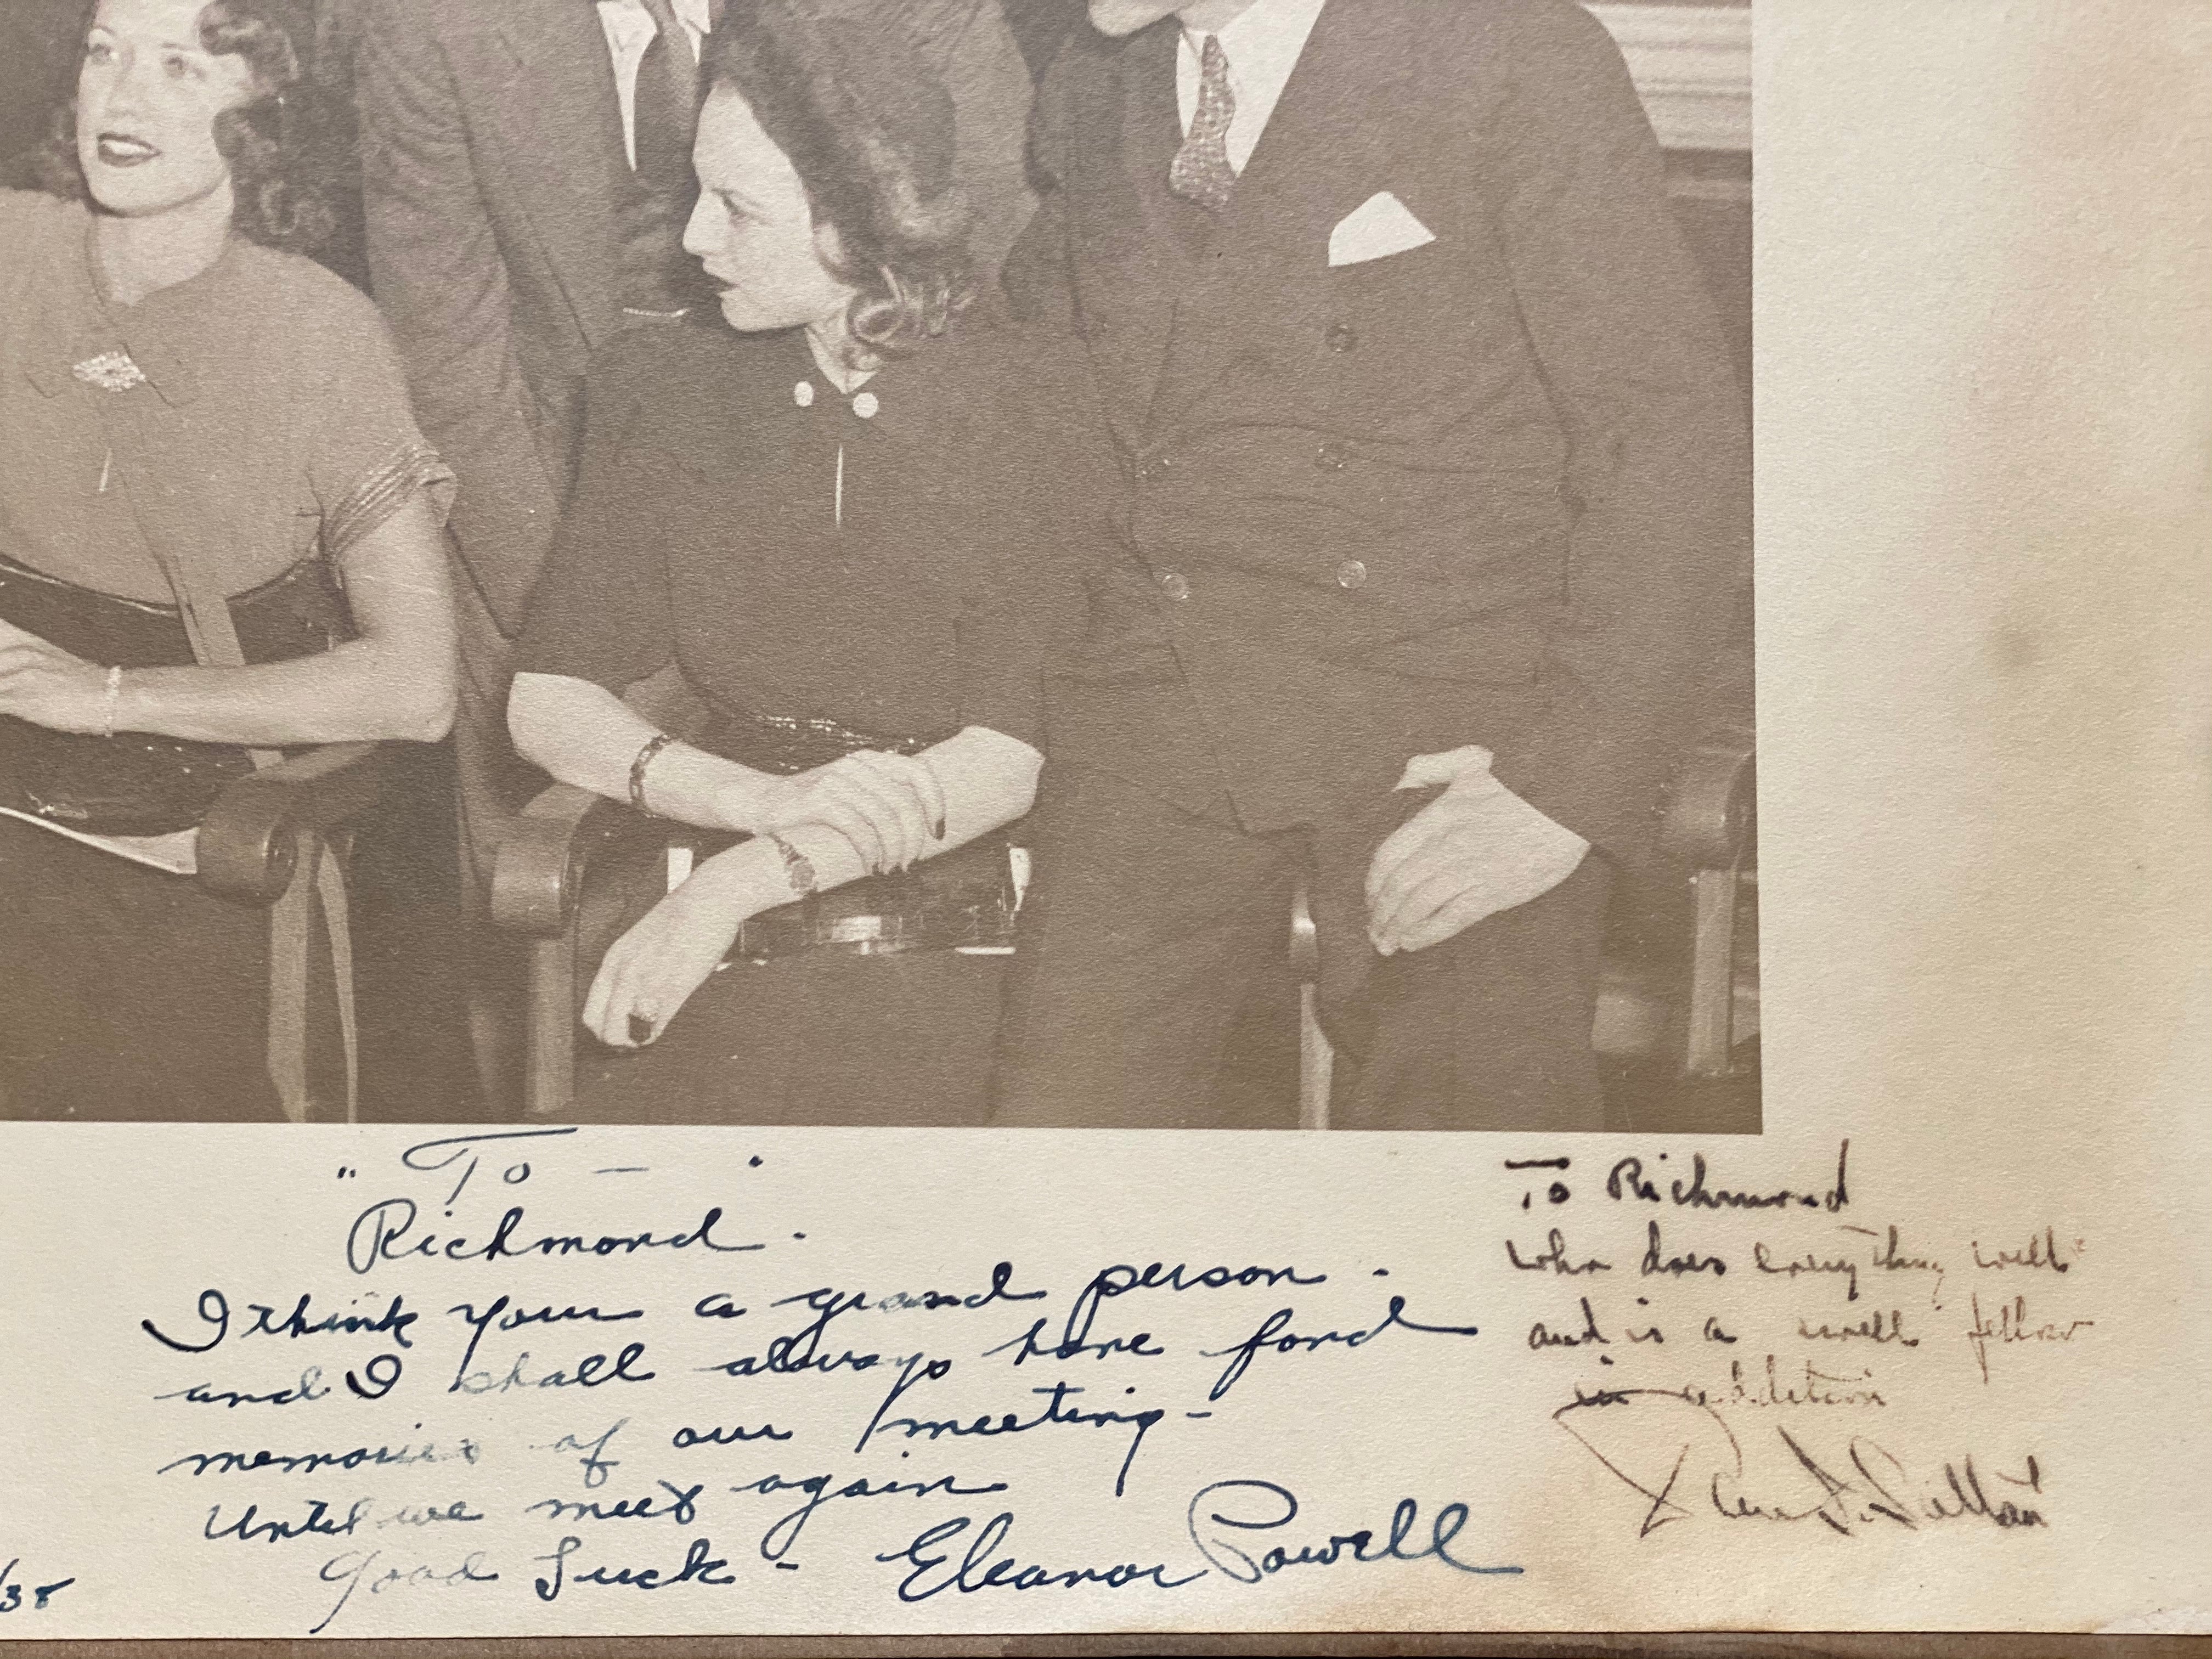 " To — "
Richmond.
I think your a grand person -
and I shall always have fond
memories of our meeting -
Until we meet again
Good Luck - Eleanor Powell
/38
To Richmond
who does everything well
and is a swell fellow
in addition